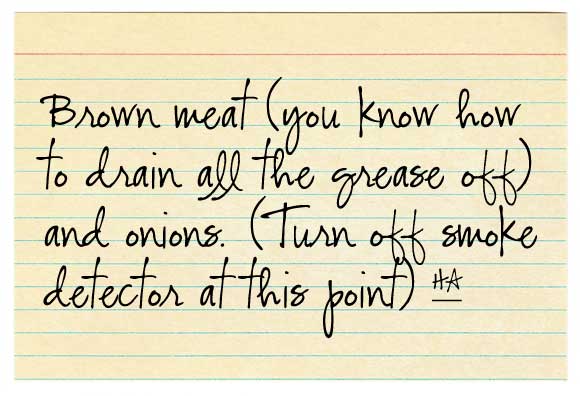 Brown meat (you know how
to drain all the grease off)
and onions. (Turn off smoke
detector at this point) HA